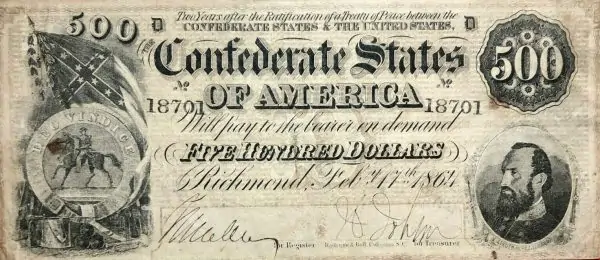 Two Years after the Ratification of a Treaty of Peace between the
CONFEDERATE STATES & THE UNITED STATES,
500 D D
Confederate States 500
No No
18701 OF AMERICA 18701
Will pay to the bearer on demand
DEO VINDICE
FIVE HUNDRED DOLLARS
Richmond, Feby 17th 1864
for Register for Treasurer